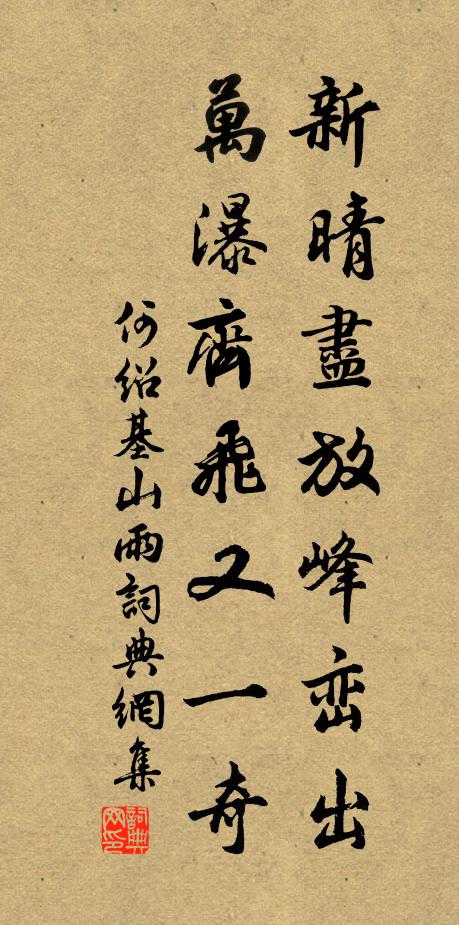 新晴盡放峰峦出
萬瀑齊飛又一奇
何紹基山雨詞典網集
詞典网印